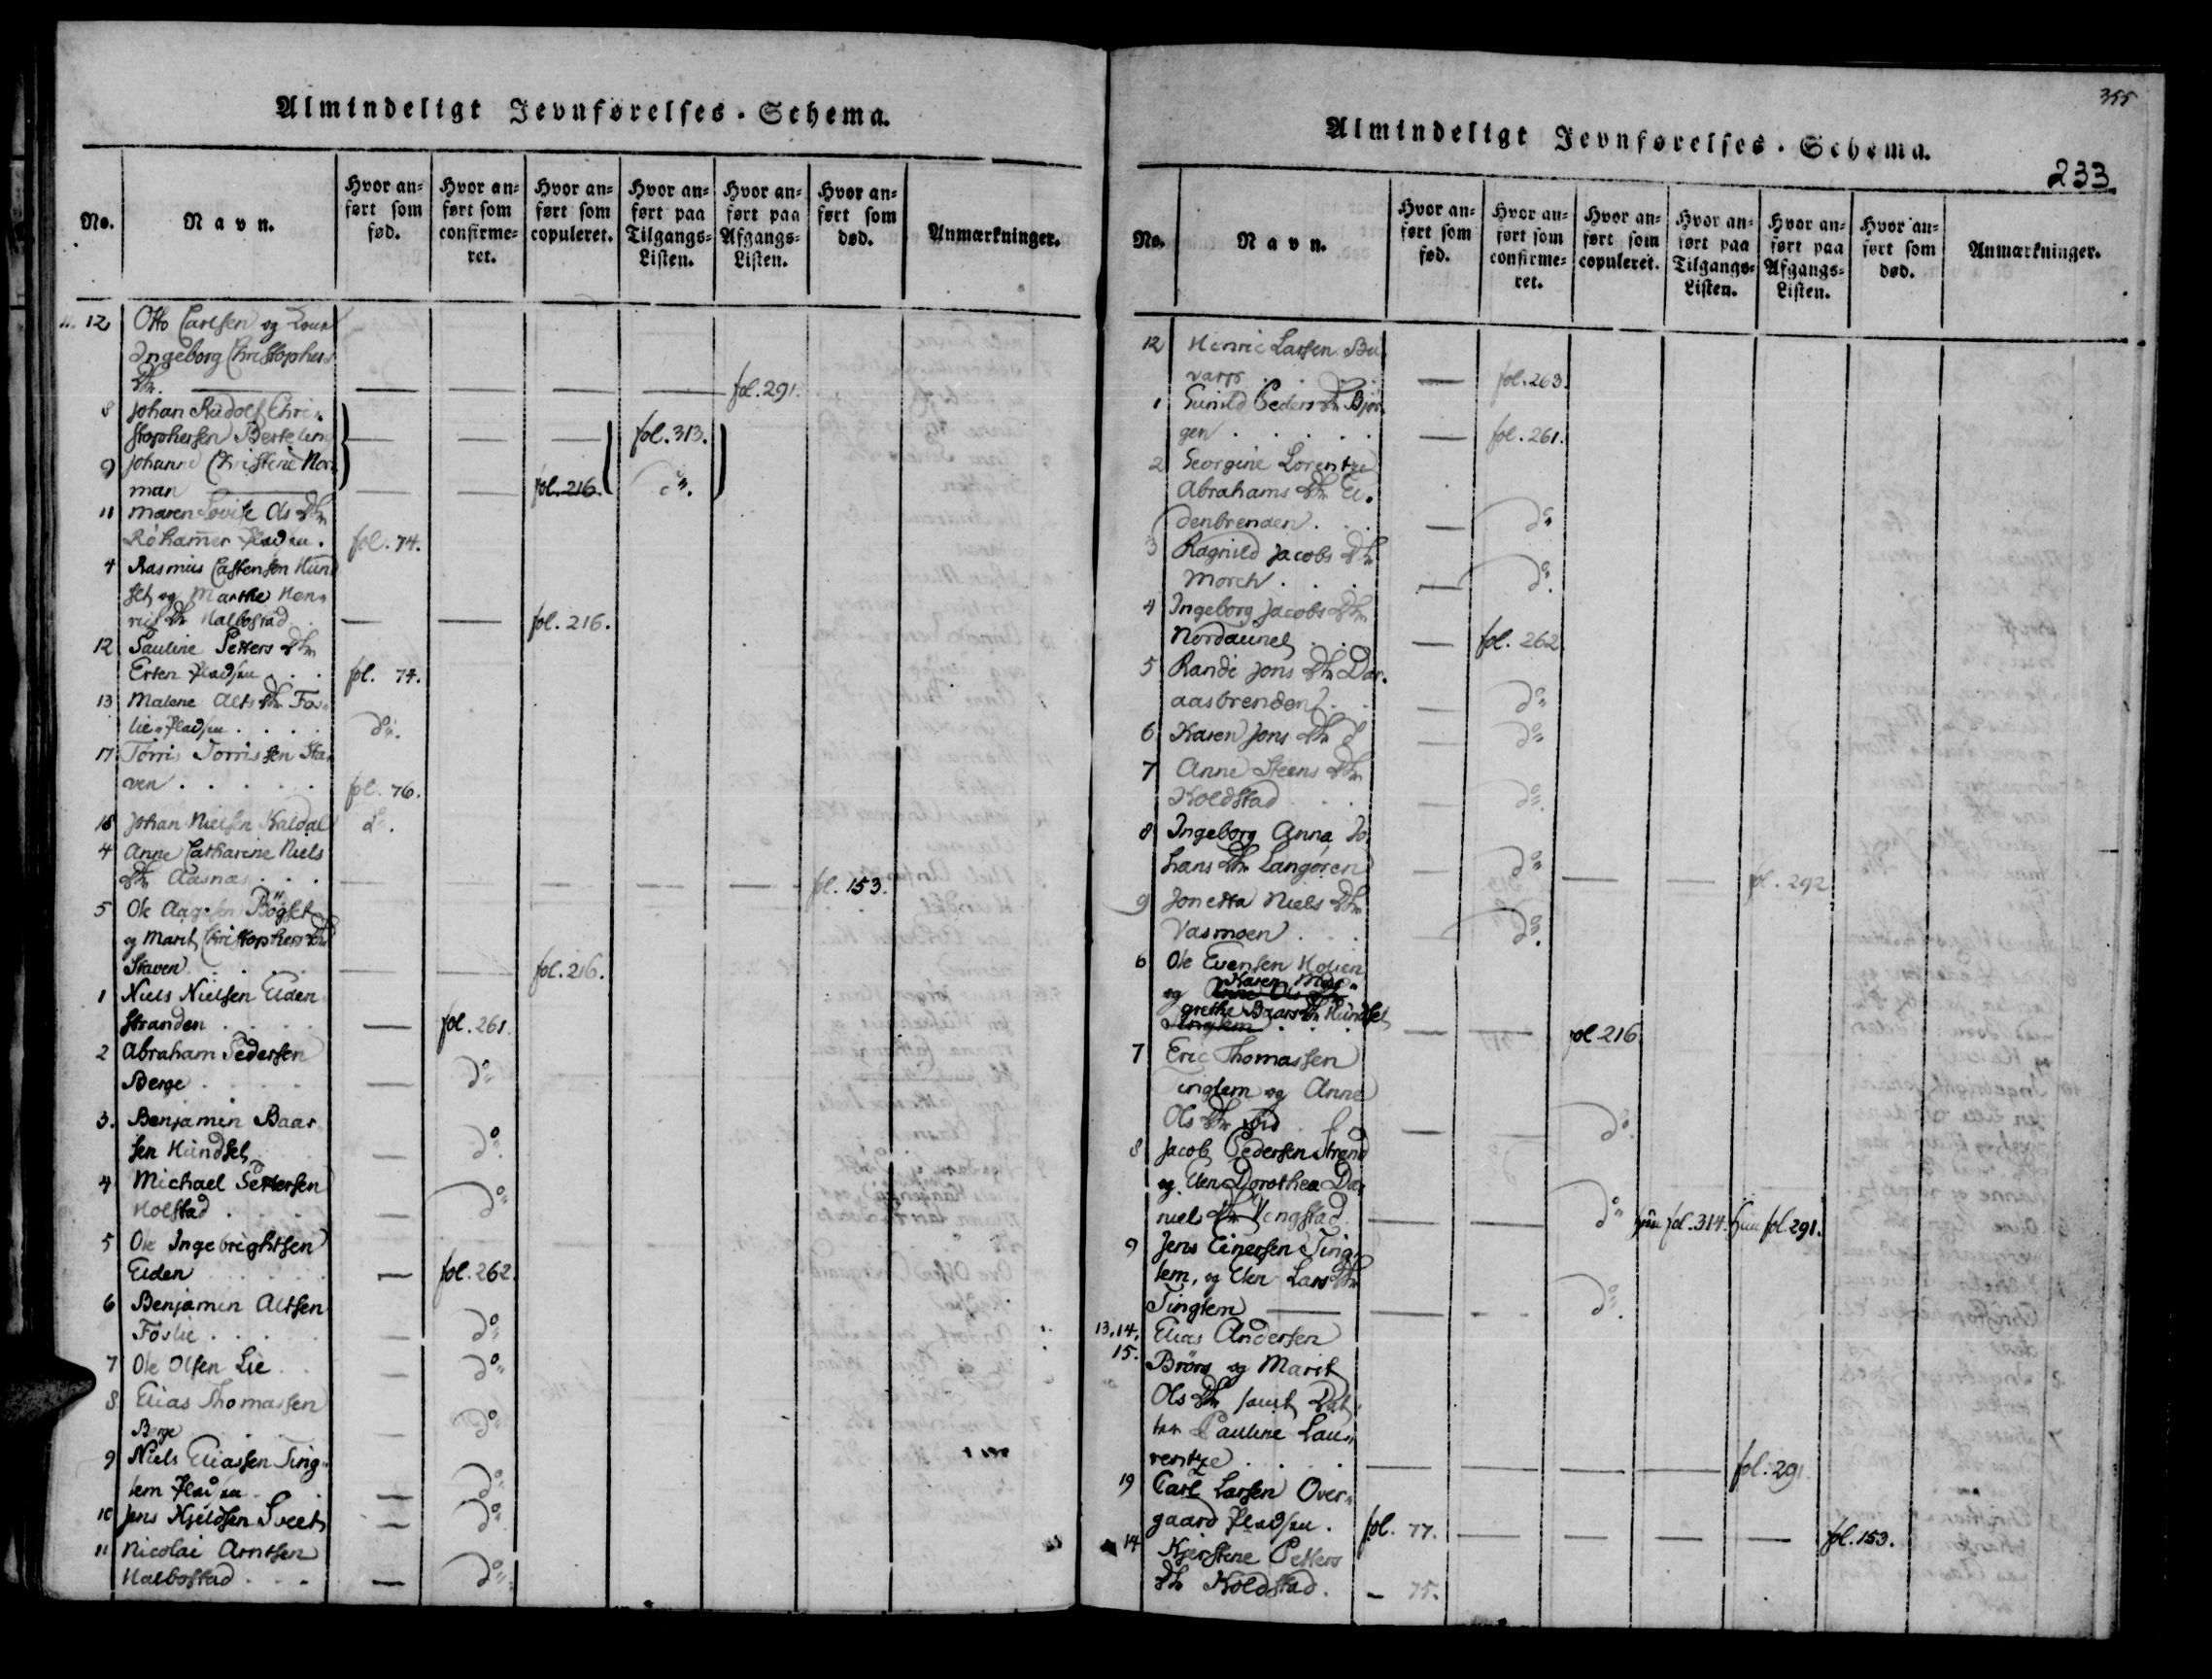 Almindeligt Jevnførelses-Schema.
No.
Navn.
Hvor an-
ført som
fød.
Hvor an-
ført som
confirme-
ret.
Hvor an-
ført som
copuleret.
Hvor an-
ført paa
Tilgangs-
Listen.
Hvor an-
ført paa
Afgangs-
Listen.
Hvor an-
ført som
død.
Anmærkninger.
11. 12 Otto Carlsen og
Ingeborg Christophers
Dtr. fol. 291.
8 Johan Rudolf Chri-
stophersen fol. 313.
9 Johanne Christine Nor
man fol. 216. do
11 Maren Lovise Ols Dtr
Róham̄er Pladsen. fol. 74.
4 Rasmus Castensen Hund
set og Marthe Hen-
rics Dtr Halbostad fol. 216.
12 Pauline Petters Dtr
Erten Pladsen fol. 74.
13 Malene Alts Dtr Fos-
lie-Pladsen do.
17 Torris Torrissen Sta
ven fol. 76.
18 Johan Nielsen Kaldal do.
4 Anne Catharine Niels
Dtr Aasnas fol. 153.
5 Ole Aagesen Bögset
og Marit Christophers Dtr
Staven fol. 216.
1 Niels Nielsen Eiden
stranden fol. 261.
2 Abraham Pedersen
Berge do
3. Benjamin Baar
sen Hundset do
4 Michael Pettersen
Holstad do
5 Ole Ingebrightsen
Eiden fol. 262.
6 Benjamin Altsen
Foslie do
7 Ole Olsen Lie do
8 Elias Thomassen
Berge do
9 Niels Eliassen Ting-
lem Pladsen do
10 Jens Kjeldsen Sveet do
11 Nicolai Arntsen
Halbostad do
355
Almindeligt Jevnførelses-Schema.
233
No.
Navn.
Hvor an-
ført som
fød.
Hvor an-
ført som
confirme-
ret.
Hvor an-
ført som
copuleret.
Hvor an-
ført paa
Tilgangs-
Listen.
Hvor an-
ført paa
Afgangs-
Listen.
Hvor an-
ført som
død.
Anmærkninger.
12 Henric Larsen Bu
varp fol. 263.
1 Gunild Peders Dtr Bjør
gen fol. 261.
2 Georgine Lorentze
Abrahams Dtr Ei-
denbrenden do
3 Ragnild Jacobs Dtr
Morch do
4 Ingeborg Jacobs Dtr
Nordaunet fol. 262
5 Randi Jons Dtr Dar-
aasbrenden do
6 Karen Jons Dtr do
7 Anne Steens Dtr
Koldstad do
8 Ingeborg Anna Jo
hans Dtr Langøren do fol. 292
9 Jonetta Niels Dtr
Vasmoen do
6 Ole Evensen Holien
Karen Mar-
og Anne Ols Dtr
grethe Baars Dtr Hundset
Tinglem fol. 216
7 Eric Thomassen
Tinglem og Anne
Ols Dtr do
8 Jacob Pedersen Strand
og Elen Dorothea Da
niels Dtr Vengstad do Hun fol. 314. Hun fol 291.
9 Jens Einersen Ting
lem, og Elen Lars Dtr
Tinglem do
13, 14, Elias Andersen
15. Brörs og Marit
Ols Dtr samt Dat
ter Pauline Lau-
rentze fol. 291
19 Carl Larsen Over-
gaard Pladsen. fol. 77. fol. 153.
14 Kjerstine Petters
Dtr Koldstad. - 75.